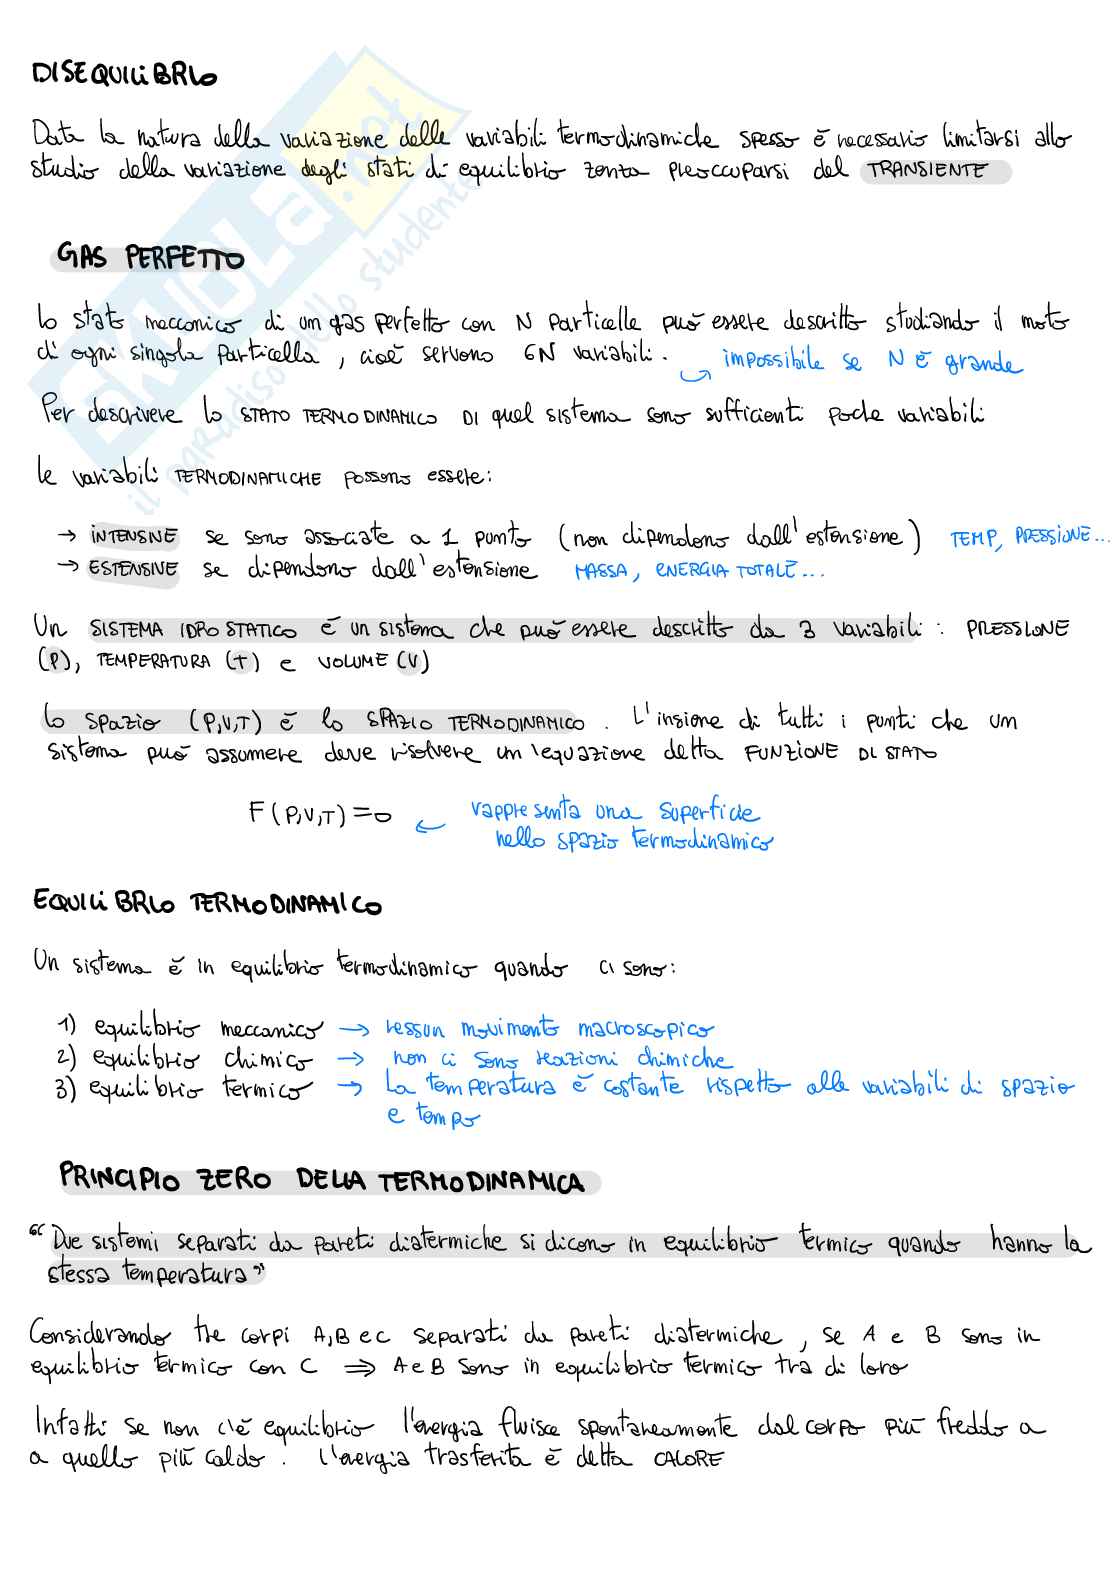 DISEQUILIBRIO
Data la natura della variazione delle variabili termodinamiche spesso è necessario limitarsi allo
studio della variazione degli stati di equilibrio senza preoccuparsi del TRANSIENTE
GAS PERFETTO
Lo stato meccanico di un gas perfetto con N particelle può essere descritto studiando il moto
di ogni singola particella, cioè servono 6N variabili.
impossibile se N è grande
Per descrivere lo STATO TERMODINAMICO DI quel sistema sono sufficienti poche variabili
le variabili TERMODINAMICHE possono essere:
→ INTENSIVE se sono associate a 1 punto (non dipendono dall'estensione) TEMP, PRESSIONE...
→ ESTENSIVE se dipendono dall'estensione MASSA, ENERGIA TOTALE...
Un SISTEMA IDROSTATICO è un sistema che può essere descritto da 3 variabili: PRESSIONE
(P), TEMPERATURA (T) e VOLUME (V)
Lo spazio (P,V,T) è lo SPAZIO TERMODINAMICO. L'insieme di tutti i punti che un
sistema può assumere deve risolvere un'equazione detta FUNZIONE DI STATO
F(P,V,T)=0
rappresenta una superficie
nello spazio termodinamico
EQUILIBRIO TERMODINAMICO
Un sistema è in equilibrio termodinamico quando ci sono:
1) equilibrio meccanico → nessun movimento macroscopico
2) equilibrio chimico → non ci sono reazioni chimiche
3) equilibrio termico → La temperatura è costante rispetto alle variabili di spazio
e tempo
PRINCIPIO ZERO DELLA TERMODINAMICA
"Due sistemi separati da pareti diatermiche si dicono in equilibrio termico quando hanno la
stessa temperatura"
Considerando tre corpi A,B e C separati da pareti diatermiche, se A e B sono in
equilibrio termico con C ⇒ A e B sono in equilibrio termico tra di loro
Infatti se non c'è equilibrio l'energia fluisce spontaneamente dal corpo più freddo a
a quello più caldo. L'energia trasferita è detta CALORE
SKUOLA.net
il paradiso dello studente